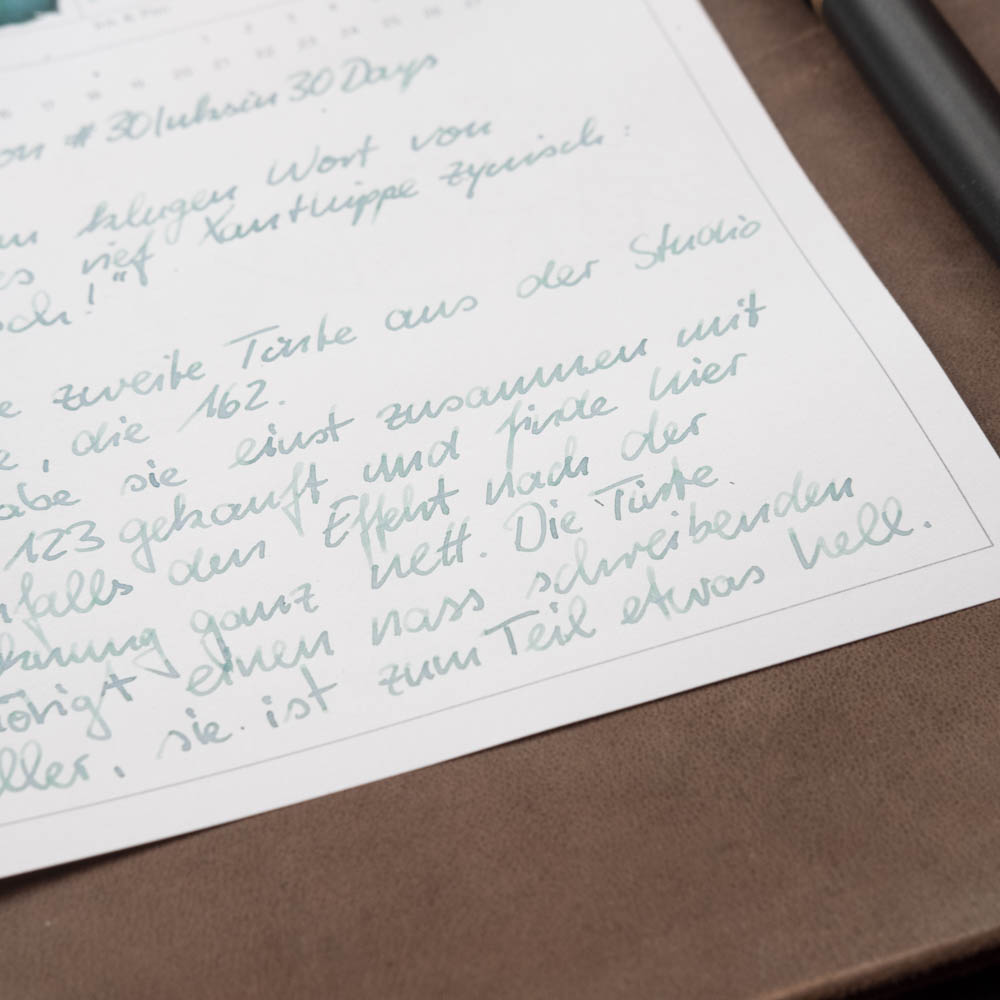 Ink & Pen
on #30Inksin30Days
klugen Wort von
es rief Xanthippe zynisch:
sch!"
e zweite Tinte aus der Studio
e, die 162.
abe sie einst zusammen mit
123 gekauft und finde hier
nfalls den Effekt nach der
knung ganz nett. Die Tinte
ötigt einen nass schreibenden
ller, sie ist zum Teil etwas hell.